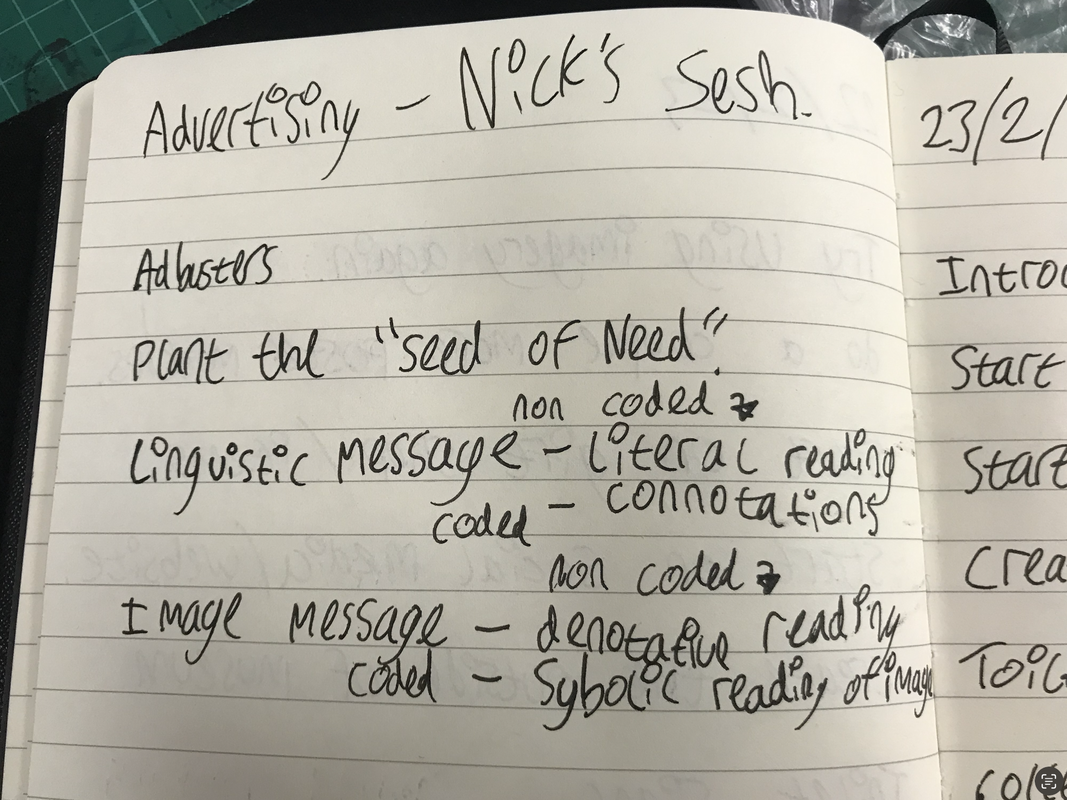 Advertising – Nick's Sesh.
Adbusters
Plant the "seed of Need".
non coded
Linguistic message – Literal reading
coded – connotations
non coded
Image message – denotative reading
coded – Sybolic reading of image
23/2/
Introd
Start
Start
Crea